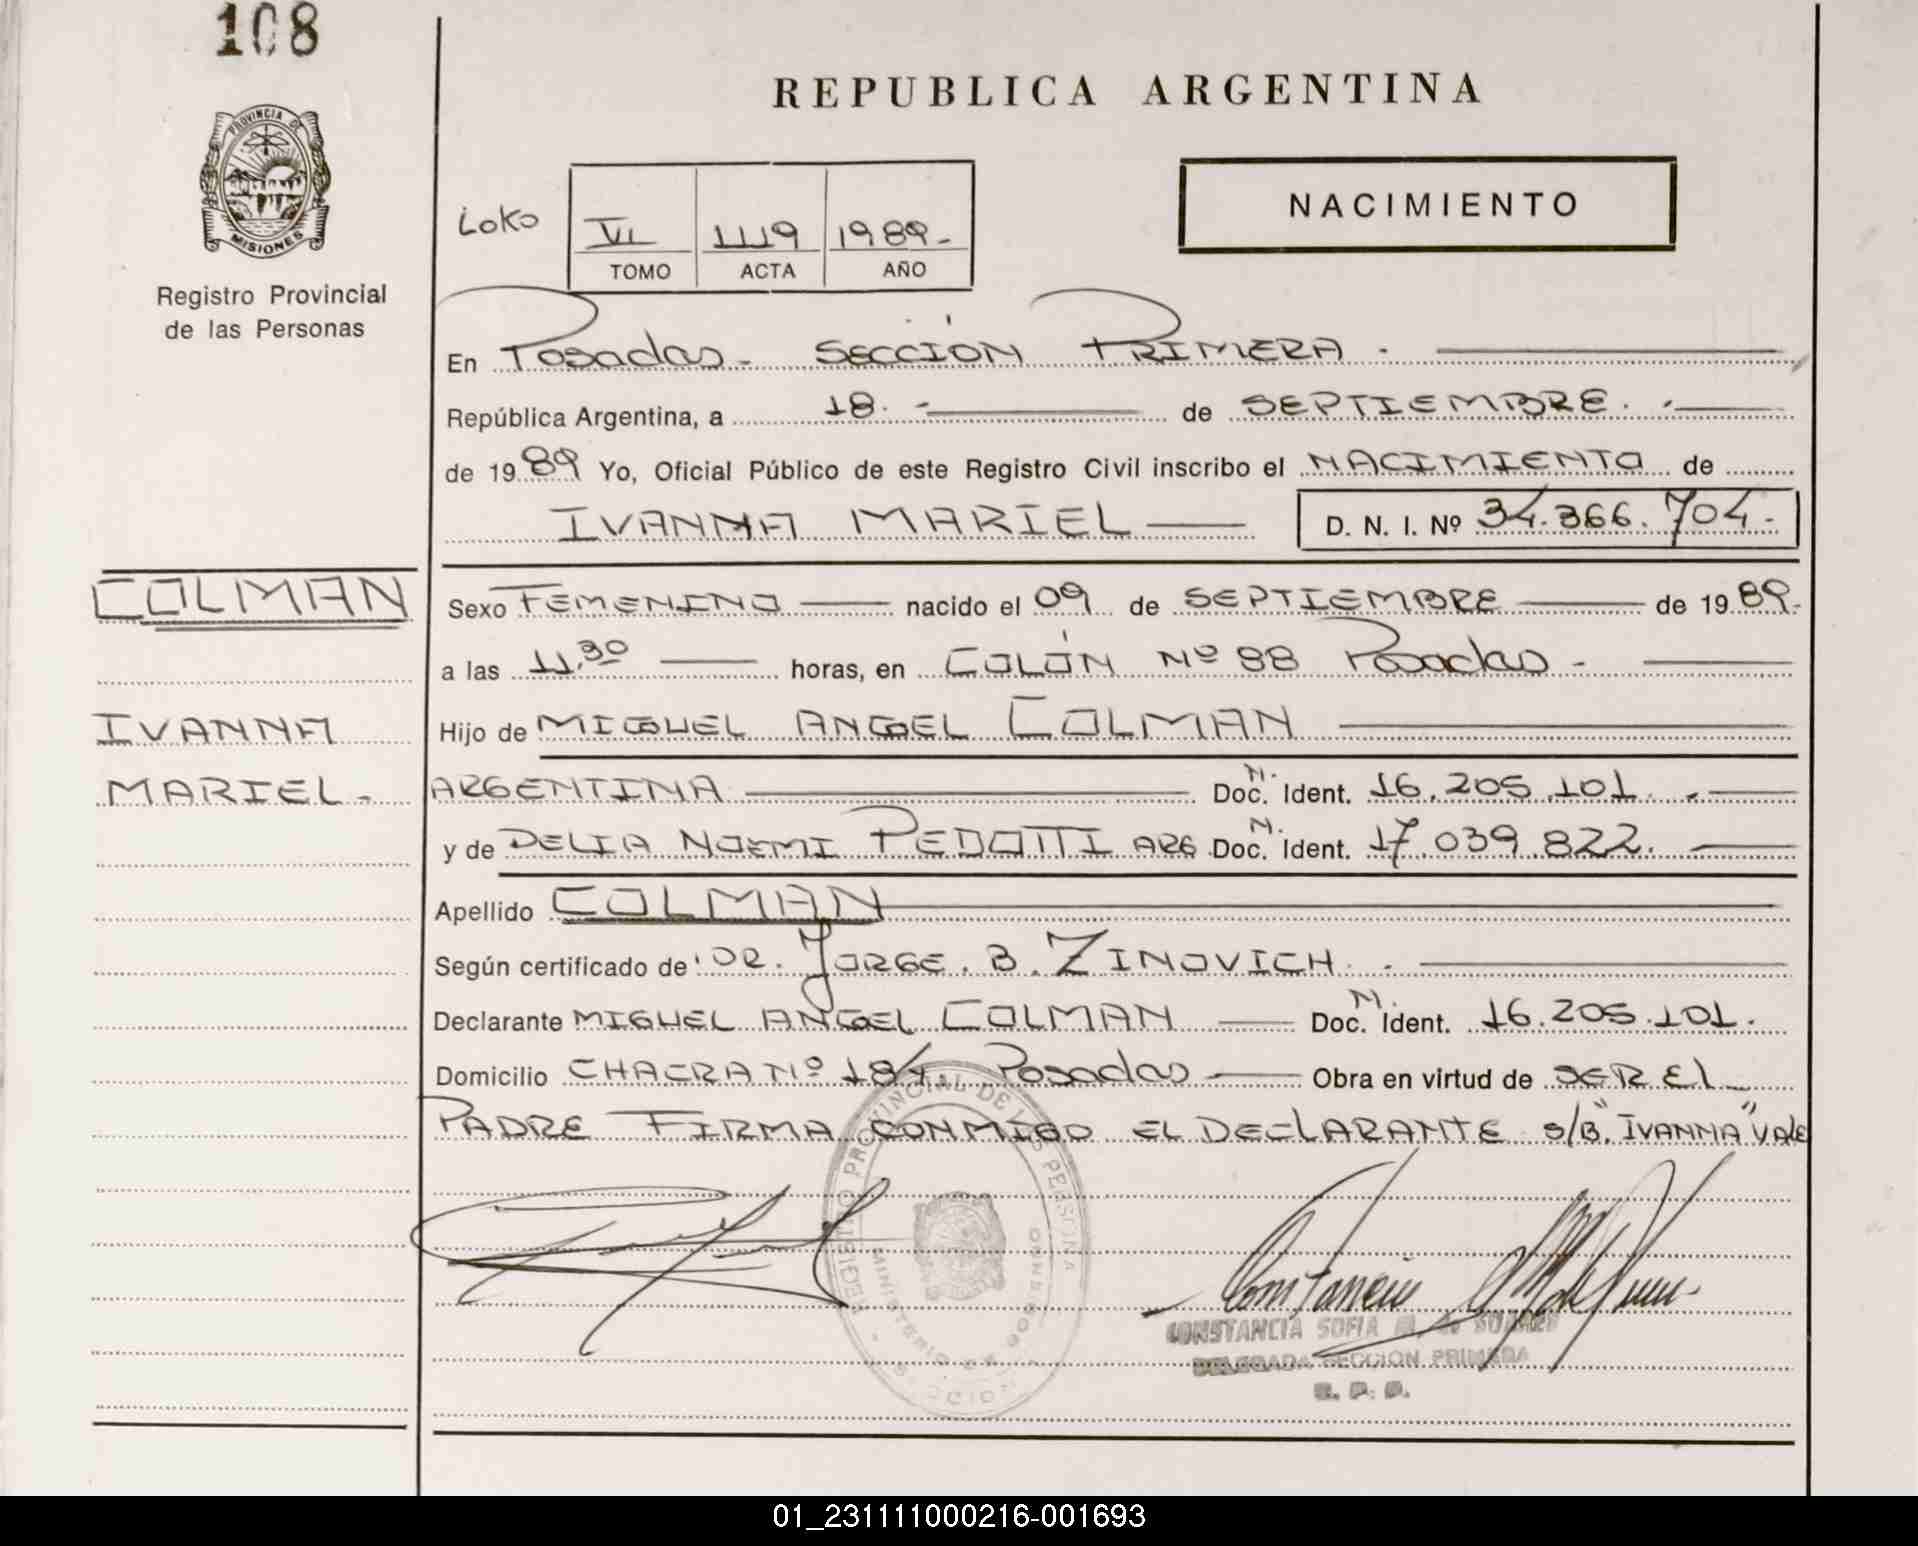 108
REPUBLICA ARGENTINA
PROVINCIA DE
MISIONES
Registro Provincial
de las Personas
Loko
VI 1119 1989-
TOMO ACTA AÑO
NACIMIENTO
En Posadas - SECCIÓN PRIMERA.
República Argentina, a 18. de SEPTIEMBRE.
de 1989 Yo, Oficial Público de este Registro Civil inscribo el NACIMIENTO de
IVANNA MARIEL D. N. I. Nº 34.366.704-
COLMAN
IVANNA
MARIEL-
Sexo FEMENINO nacido el 09 de SEPTIEMBRE de 1989-
a las 11.30 horas, en COLÓN Nº 88 Posadas -
Hijo de MIGUEL ANGEL COLMAN
ARGENTINA Doc. N. Ident. 16.205.101.
y de DELIA NOEMI PEDOTTI ARG Doc. N. Ident. 17.039.822.
Apellido COLMAN
Según certificado de DR. JORGE. B. ZINOVICH.
Declarante MIGUEL ANGEL COLMAN Doc. N. Ident. 16.205.101.
Domicilio CHACRA Nº 184 Posadas Obra en virtud de SER EL
PADRE FIRMA CONMIGO EL DECLARANTE S/B "IVANNA" VALE
REGISTRO PROVINCIAL DE LAS PERSONAS
MINISTERIO DE GOBIERNO
CONSTANCIA SOFIA
DELEGADA SECCION PRIMERA
R. P. P.
01_231111000216-001693